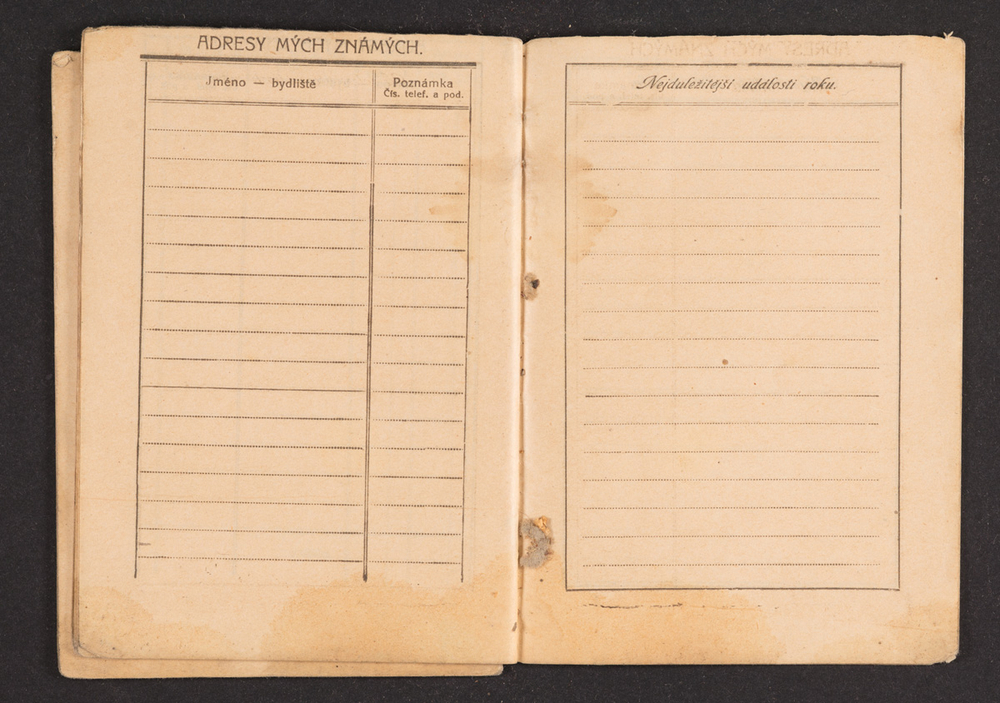 ADRESY MÝCH ZNÁMÝCH.
Jméno — bydliště
Poznámka
Čís. telef. a pod.
Nejdůležitější události roku.